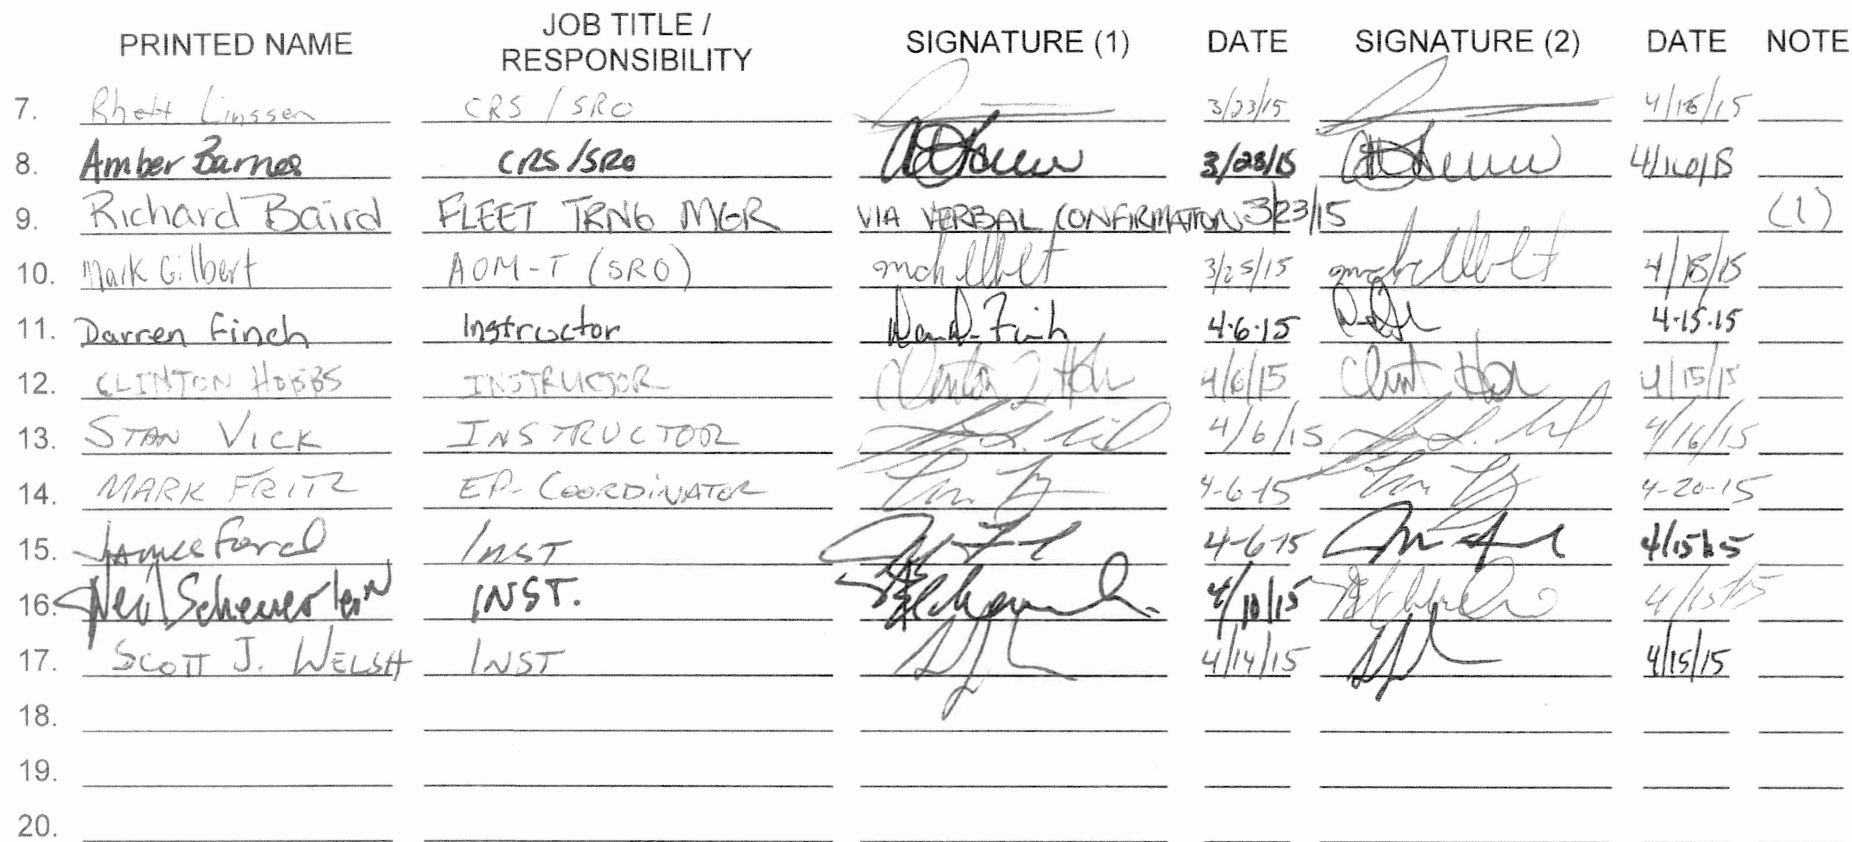 PRINTED NAME JOB TITLE / RESPONSIBILITY SIGNATURE (1) DATE SIGNATURE (2) DATE NOTE
7. Rhett Linssen CRS / SRO 3/23/15 4/16/15
8. Amber Barnes CRS/SRO 3/28/15 4/16/15
9. Richard Baird FLEET TRNG MGR VIA VERBAL CONFIRMATION 3/23/15 (1)
10. Mark Gilbert AOM-T (SRO) 3/25/15 4/15/15
11. Darren Finch Instructor 4·6·15 4·15·15
12. CLINTON HOBBS INSTRUCTOR 4/6/15 Clint 4/15/15
13. STAN VICK INSTRUCTOR 4/6/15 4/16/15
14. MARK FRITZ EP-COORDINATOR 4-6-15 4-20-15
15. JAMES Ford INST 4-6-15 4/15/15
16. Neil Scheuerlein INST. 4/10/15 4/15/15
17. SCOTT J. WELSH INST 4/14/15 4/15/15
18.
19.
20.